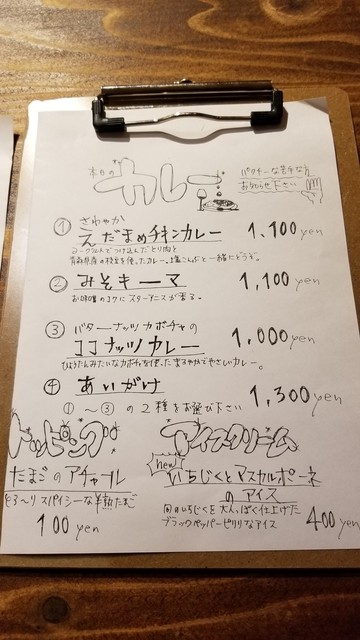 本日の
カレー
パクチーな苦手な方
お知らせ下さい
① さわやか
えだまめチキンカレー 1,100 yen
ヨーグルトでつけ込んだとり肉と
青森県産の枝豆を使ったカレー。塩こんぶと一緒にどうぞ。
② みそキーマ 1,100 yen
お味噌のコクにスターアニスが香る。
③ バターナッツカボチャの
ココナッツカレー 1,000 yen
ひょうたんみたいなカボチャを使ったまろやかでやさしいカレー。
④ あいがけ 1,300 yen
①〜③の2種をお選び下さい
トッピング
たまごのアチャール
とろ〜りスパイシーな半熟たまご
100 yen
アイスクリーム
new
いちじくとマスカルポーネ
のアイス
旬のいちじくを大人っぽく仕上げた
ブラックペッパーピリリなアイス
400 yen